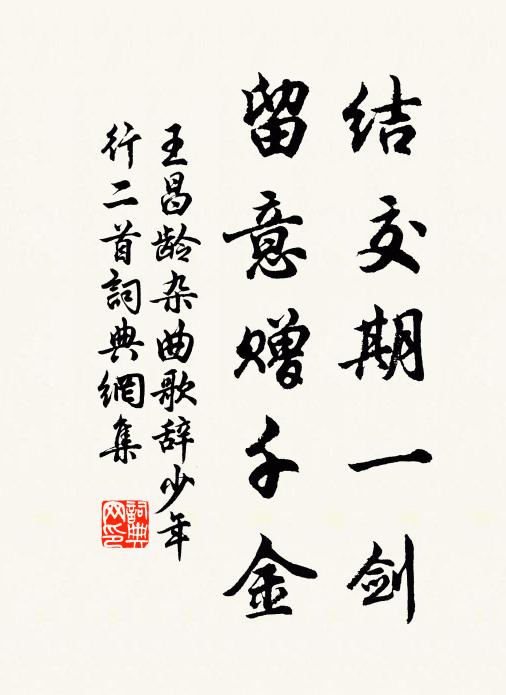 结交期一剑
留意赠千金
王昌龄杂曲歌辞少年
行二首詞典網集
詞典
网印